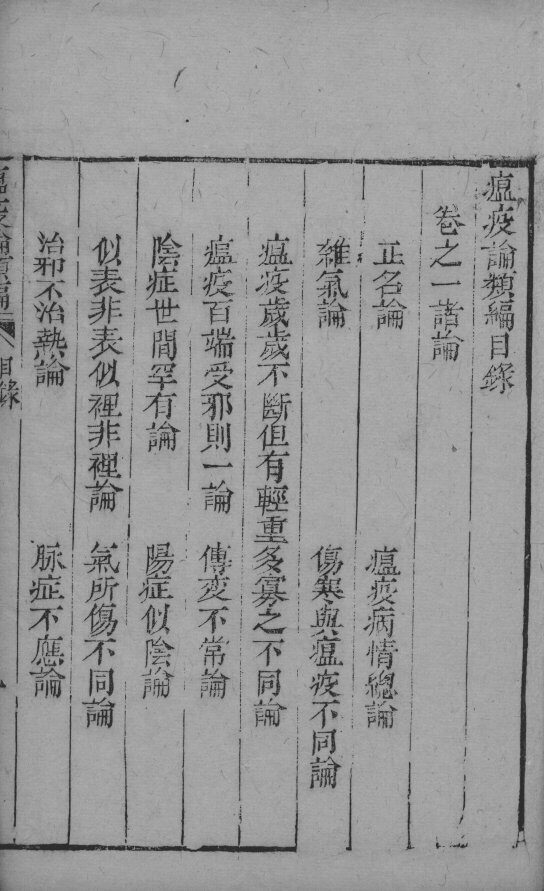 瘟疫論類編目錄
卷之一諸論
正名論　瘟疫病情總論
雜氣論　傷寒與瘟疫不同論
瘟疫歲歲不斷但有輕重多寡之不同論
瘟疫百端受邪則一論　傳変不常論
陰症世間罕有論　陽症似陰論
似表非表似裡非裡論　氣所傷不同論
治邪不治熱論　脉症不應論
瘟疫論類編　目錄